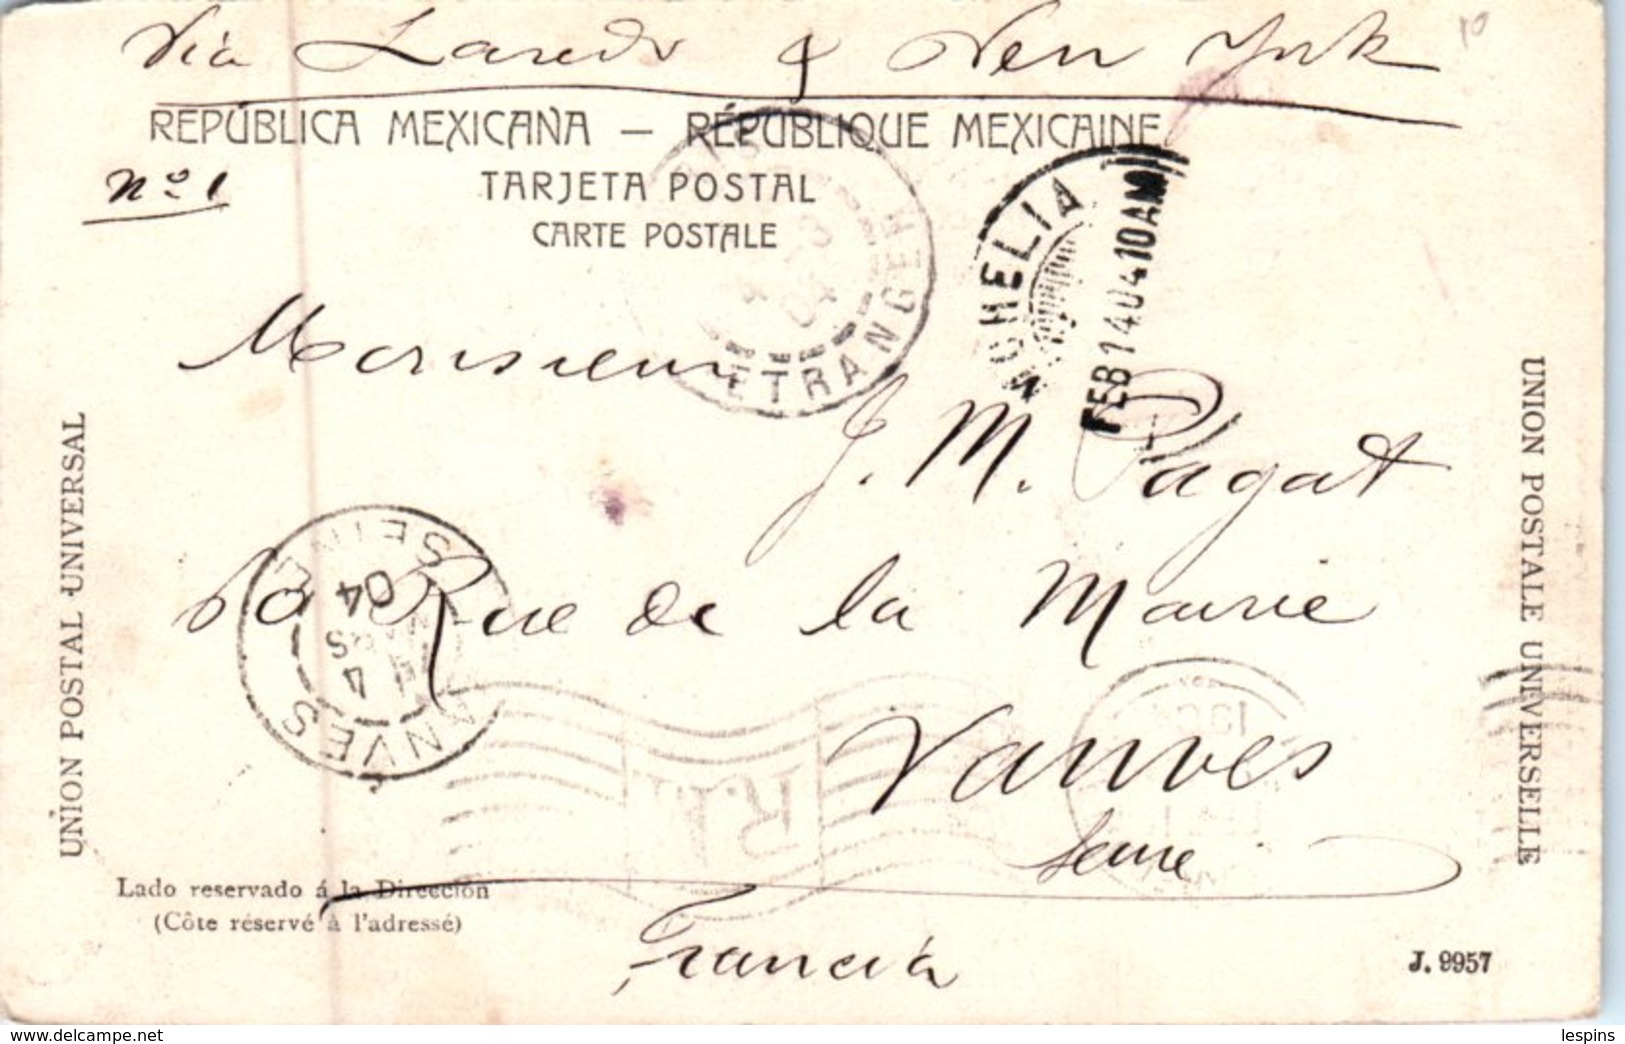 Via Laredo & New York
10
REPÚBLICA MEXICANA — RÉPUBLIQUE MEXICAINE
Nº 1
TARJETA POSTAL
CARTE POSTALE
ETRANGER
MORELIA
FEB 14 04 10AM
Monsieur
J. M. Pagat
60 Rue de la Mairie
Vanves
Seine
Francia
VANVES
SEINE
4
04
UNION POSTAL UNIVERSAL
UNION POSTALE UNIVERSELLE
Lado reservado á la Dirección
(Côte réservé à l'adressé)
J. 9957
delcampe.net
lespins